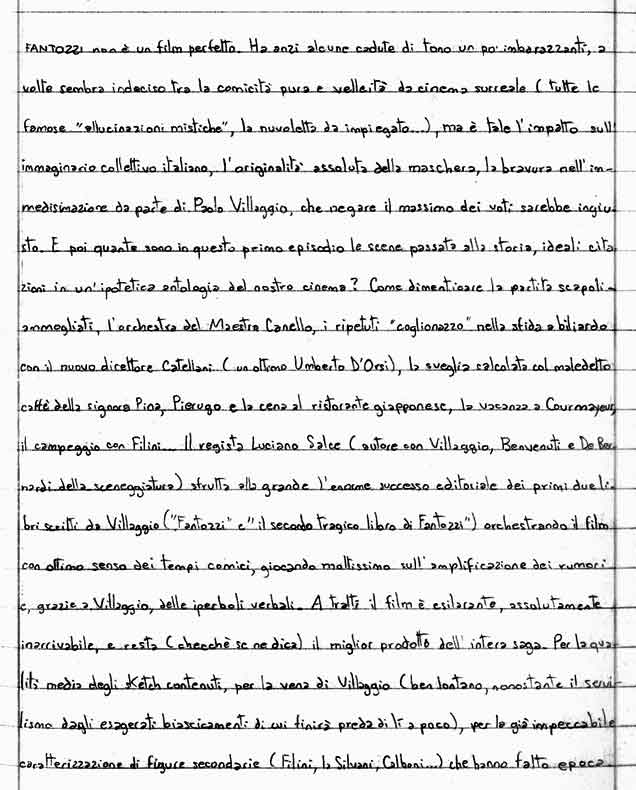 FANTOZZI non è un film perfetto. Ha anzi alcune cadute di tono un po' imbarazzanti, a
volte sembra indeciso tra la comicità pura e velleità da cinema surreale (tutte le
famose "allucinazioni mistiche", la nuvoletta da impiegato...), ma è tale l'impatto sull'
immaginario collettivo italiano, l'originalità assoluta della maschera, la bravura nell'im-
medisimazione da parte di Paolo Villaggio, che negare il massimo dei voti sarebbe ingiu
sto. E poi quante sono in questo primo episodio le scene passate alla storia, ideali cita
zioni in un'ipotetica antologia del nostro cinema? Come dimenticare la partita scapoli-
ammogliati, l'orchestra del Maestro Canello, i ripetuti "coglionazzo" nella sfida a biliardo
con il nuovo direttore Catellani (un ottimo Umberto D'Orsi), la sveglia calcolata col maledetto
caffè della signora Pina, Pierugo e la cena al ristorante giapponese, la vacanza a Courmayeur,
il campeggio con Filini... Il regista Luciano Salce (autore con Villaggio, Benvenuti e De Ber
nardi della sceneggiatura) sfrutta alla grande l'enorme successo editoriale dei primi due li-
bri scritti da Villaggio ("Fantozzi" e "il secondo tragico libro di Fantozzi") orchestrando il film
con ottimo senso dei tempi comici, giocando moltissimo sull'amplificazione dei rumori
e, grazie a Villaggio, delle iperboli verbali. A tratti il film è esilarante, assolutamente
inarrivabile, e resta (checchè se ne dica) il miglior prodotto dell'intera saga. Per la qua
lità media degli sketch contenuti, per la vena di Villaggio (ben lontano, nonostante il servi-
lismo dagli esagerati biascicamenti di cui finirà preda di lì a poco), per le già impeccabile
caratterizzazione di figure secondarie (Filini, la Silvani, Calboni...) che hanno fatto epoca.